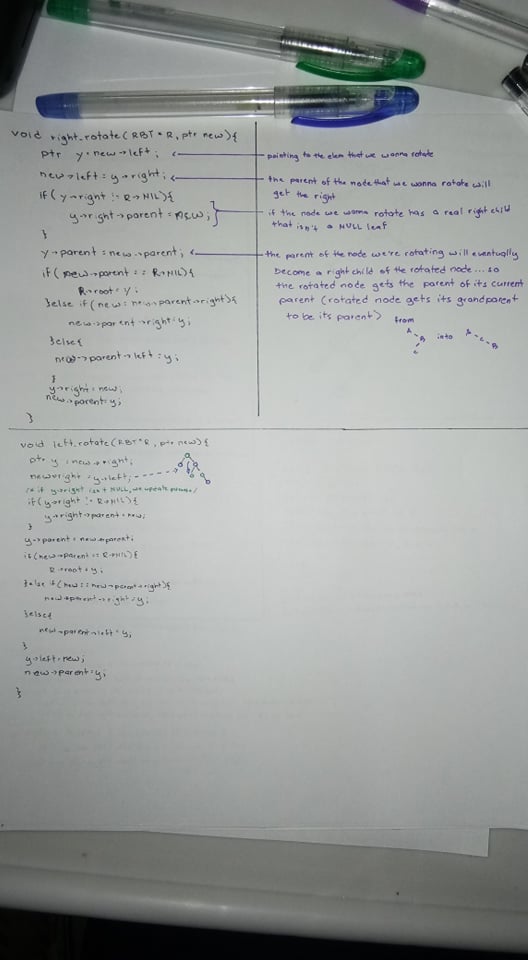 void right_rotate(RBT * R, ptr new){
ptr y = new→left;
new→left = y→right;
if( y→right != R→NIL){
y→right→parent = new;
}
y→parent = new→parent;
if( new→parent == R→NIL){
R→root = y;
}else if( new == new→parent→right){
new→parent→right = y;
}else{
new→parent→left = y;
}
y→right = new;
new→parent = y;
}
pointing to the elem that we wanna rotate
the parent of the node that we wanna rotate will
get the right
if the node we wanna rotate has a real right child
that isn't a NULL leaf
the parent of the node we're rotating will eventually
become a right child of the rotated node... so
the rotated node gets the parent of its current
parent (rotated node gets its grandparent
to be its parent)
from
into
void left_rotate(RBT*R, ptr new){
ptr y = new→right;
new→right = y→left;
/* if y→right isn't NULL, we update
if( y→right != R→NIL){
y→right→parent = new;
}
y→parent = new→parent;
if(new→parent == R→NIL){
R→root = y;
}else if(new == new→parent→right){
new→parent→right = y;
}else{
new→parent→left = y;
}
y→left = new;
new→parent = y;
}